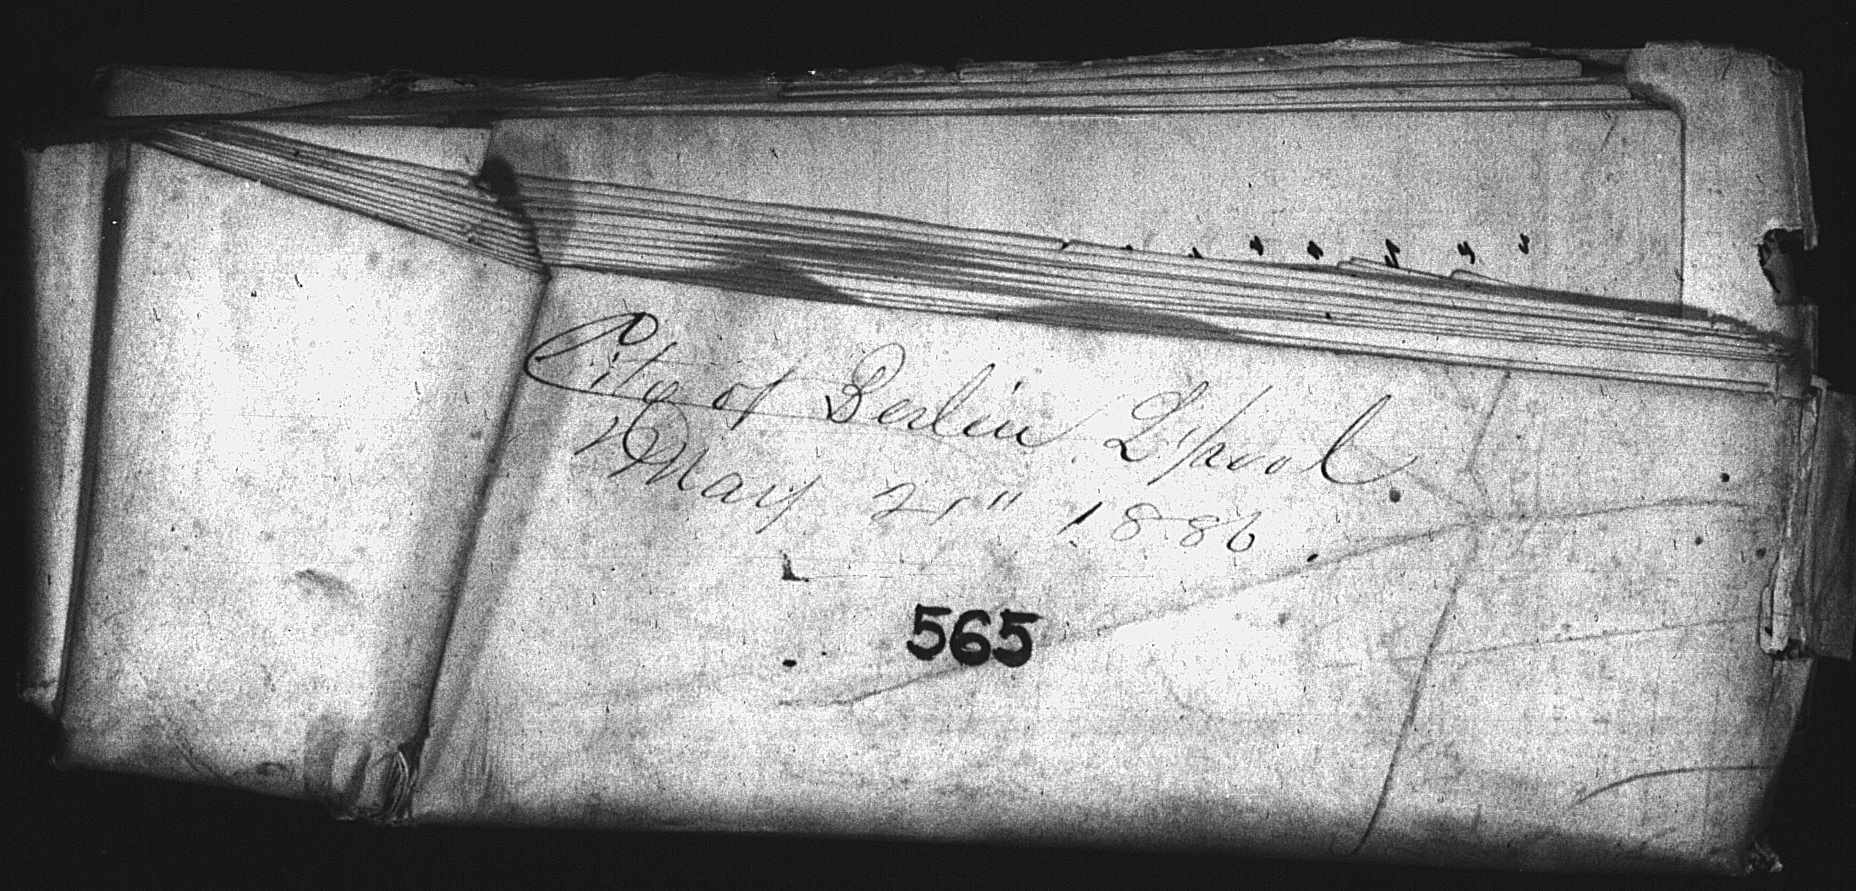 City of Berlin L'pool.
May 21" 1886.
565